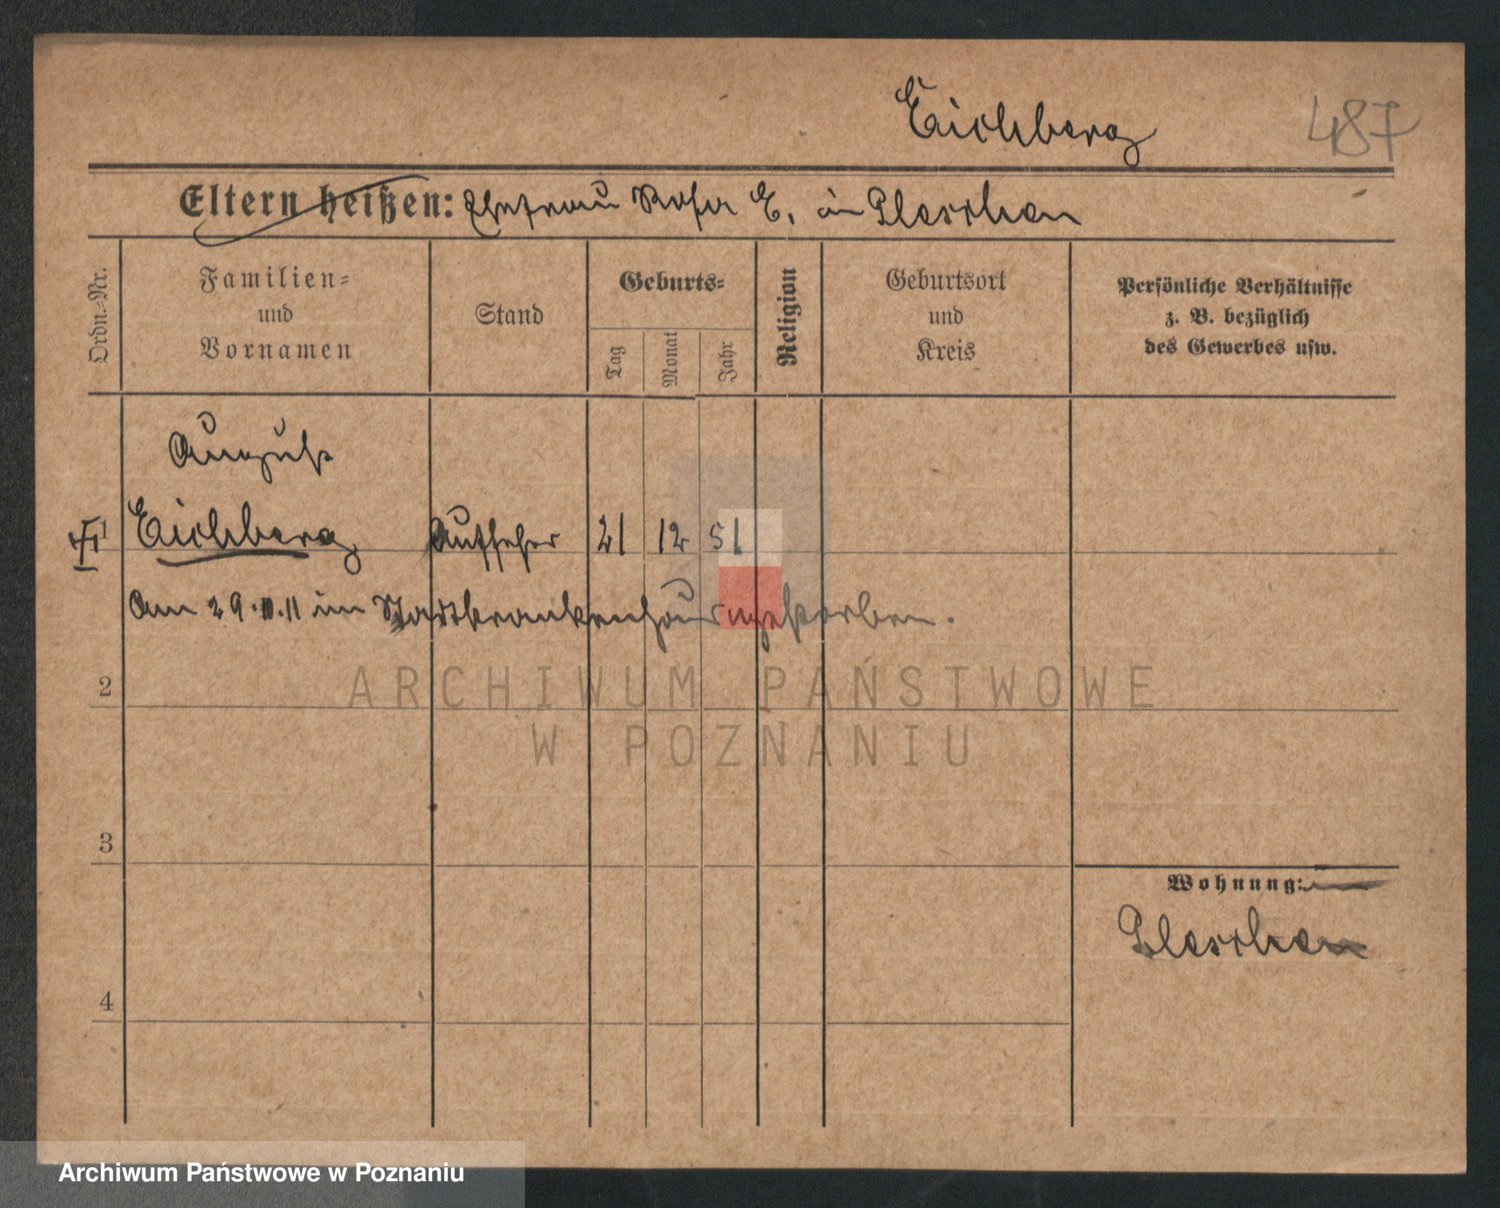 Eichberg
487
Eltern heißen: Ehefrau Rosa E. in Pleschen
Ordn.-Nr.
Familien-
und
Vornamen
Stand
Geburts-
Tag
Monat
Jahr
Religion
Geburtsort
und
Kreis
Persönliche Verhältnisse
z. B. bezüglich
des Gewerbes usw.
August
1 Eichberg Aufseher 21 12 51
Am 29. 11 im Stadtkrankenhaus gestorben.
ARCHIWUM PAŃSTWOWE
W POZNANIU
2
3
Wohnung:
Pleschen
4
Archiwum Państwowe w Poznaniu